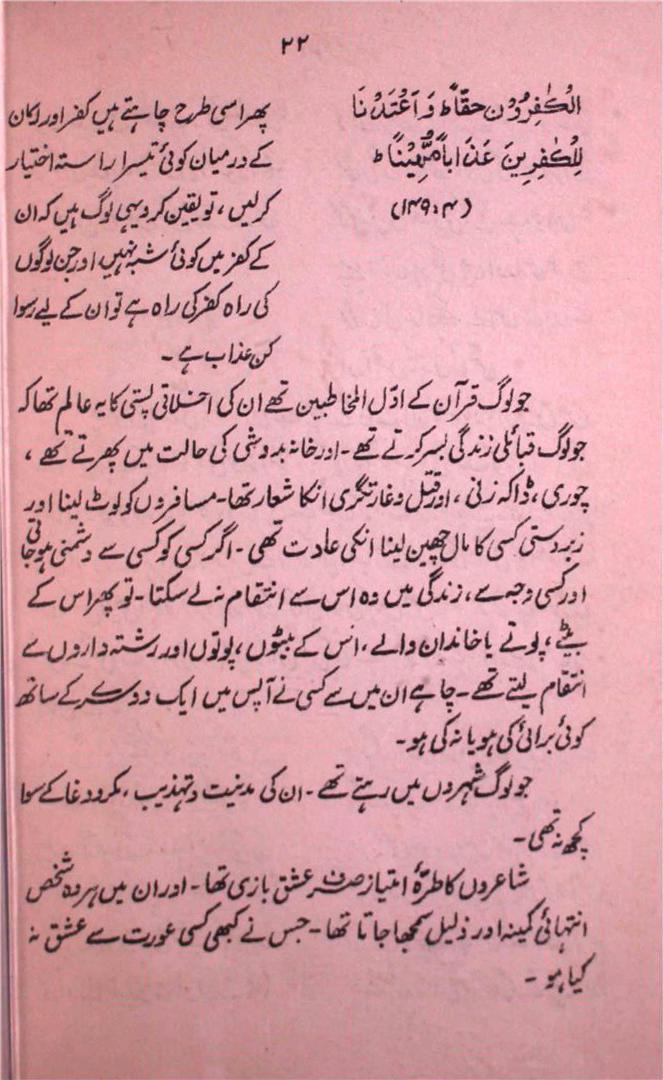 ۲۲
الْكٰفِرُوْنَ حَقًّا ط وَاَعْتَدْنَا
لِلْكٰفِرِيْنَ عَذَابًا مُّهِيْنًا ط
(۴ : ۱۴۹)
پھر اسی طرح چاہتے ہیں کفر اور ایمان
کے درمیان کوئی تیسرا راستہ اختیار
کرلیں، تو یقین کرو یہی لوگ ہیں کہ ان
کے کفر میں کوئی شبہ نہیں اور جن لوگوں
کی راہ کفر کی راہ ہے تو ان کے لیے رسوا
کن عذاب ہے ۔
جو لوگ قرآن کے اوّل المخاطبین تھے ان کی اخلاقی پستی کا یہ عالم تھا کہ
جو لوگ قبائلی زندگی بسر کرتے تھے ۔ اور خانہ بدوشی کی حالت میں پھرتے تھے ،
چوری ، ڈاکہ زنی ، اور قتل و غارتگری انکا شعار تھا ۔ مسافروں کو لوٹ لینا اور
زبردستی کسی کا مال چھین لینا انکی عادت تھی ۔ اگر کسی کو کسی سے دشمنی ہو جاتی
اور کسی وجہ سے ، زندگی میں وہ اس سے انتقام نہ لے سکتا ۔ تو پھر اس کے
بیٹے ، پوتے یا خاندان والے ، اس کے بیٹوں ، پوتوں اور رشتہ داروں سے
انتقام لیتے تھے ۔ چاہے ان میں سے کسی نے آپس میں ایک دوسرے کے ساتھ
کوئی برائی کی ہو یا نہ کی ہو ۔
جو لوگ شہروں میں رہتے تھے ۔ ان کی مدنیت و تہذیب ، مکر و دغا کے سوا
کچھ نہ تھی ۔
شاعروں کا طرۂ امتیاز صرف عشق بازی تھا ۔ اور ان میں ہر وہ شخص
انتہائی کمینہ اور ذلیل سمجھا جاتا تھا ۔ جس نے کبھی کسی عورت سے عشق نہ
کیا ہو ۔